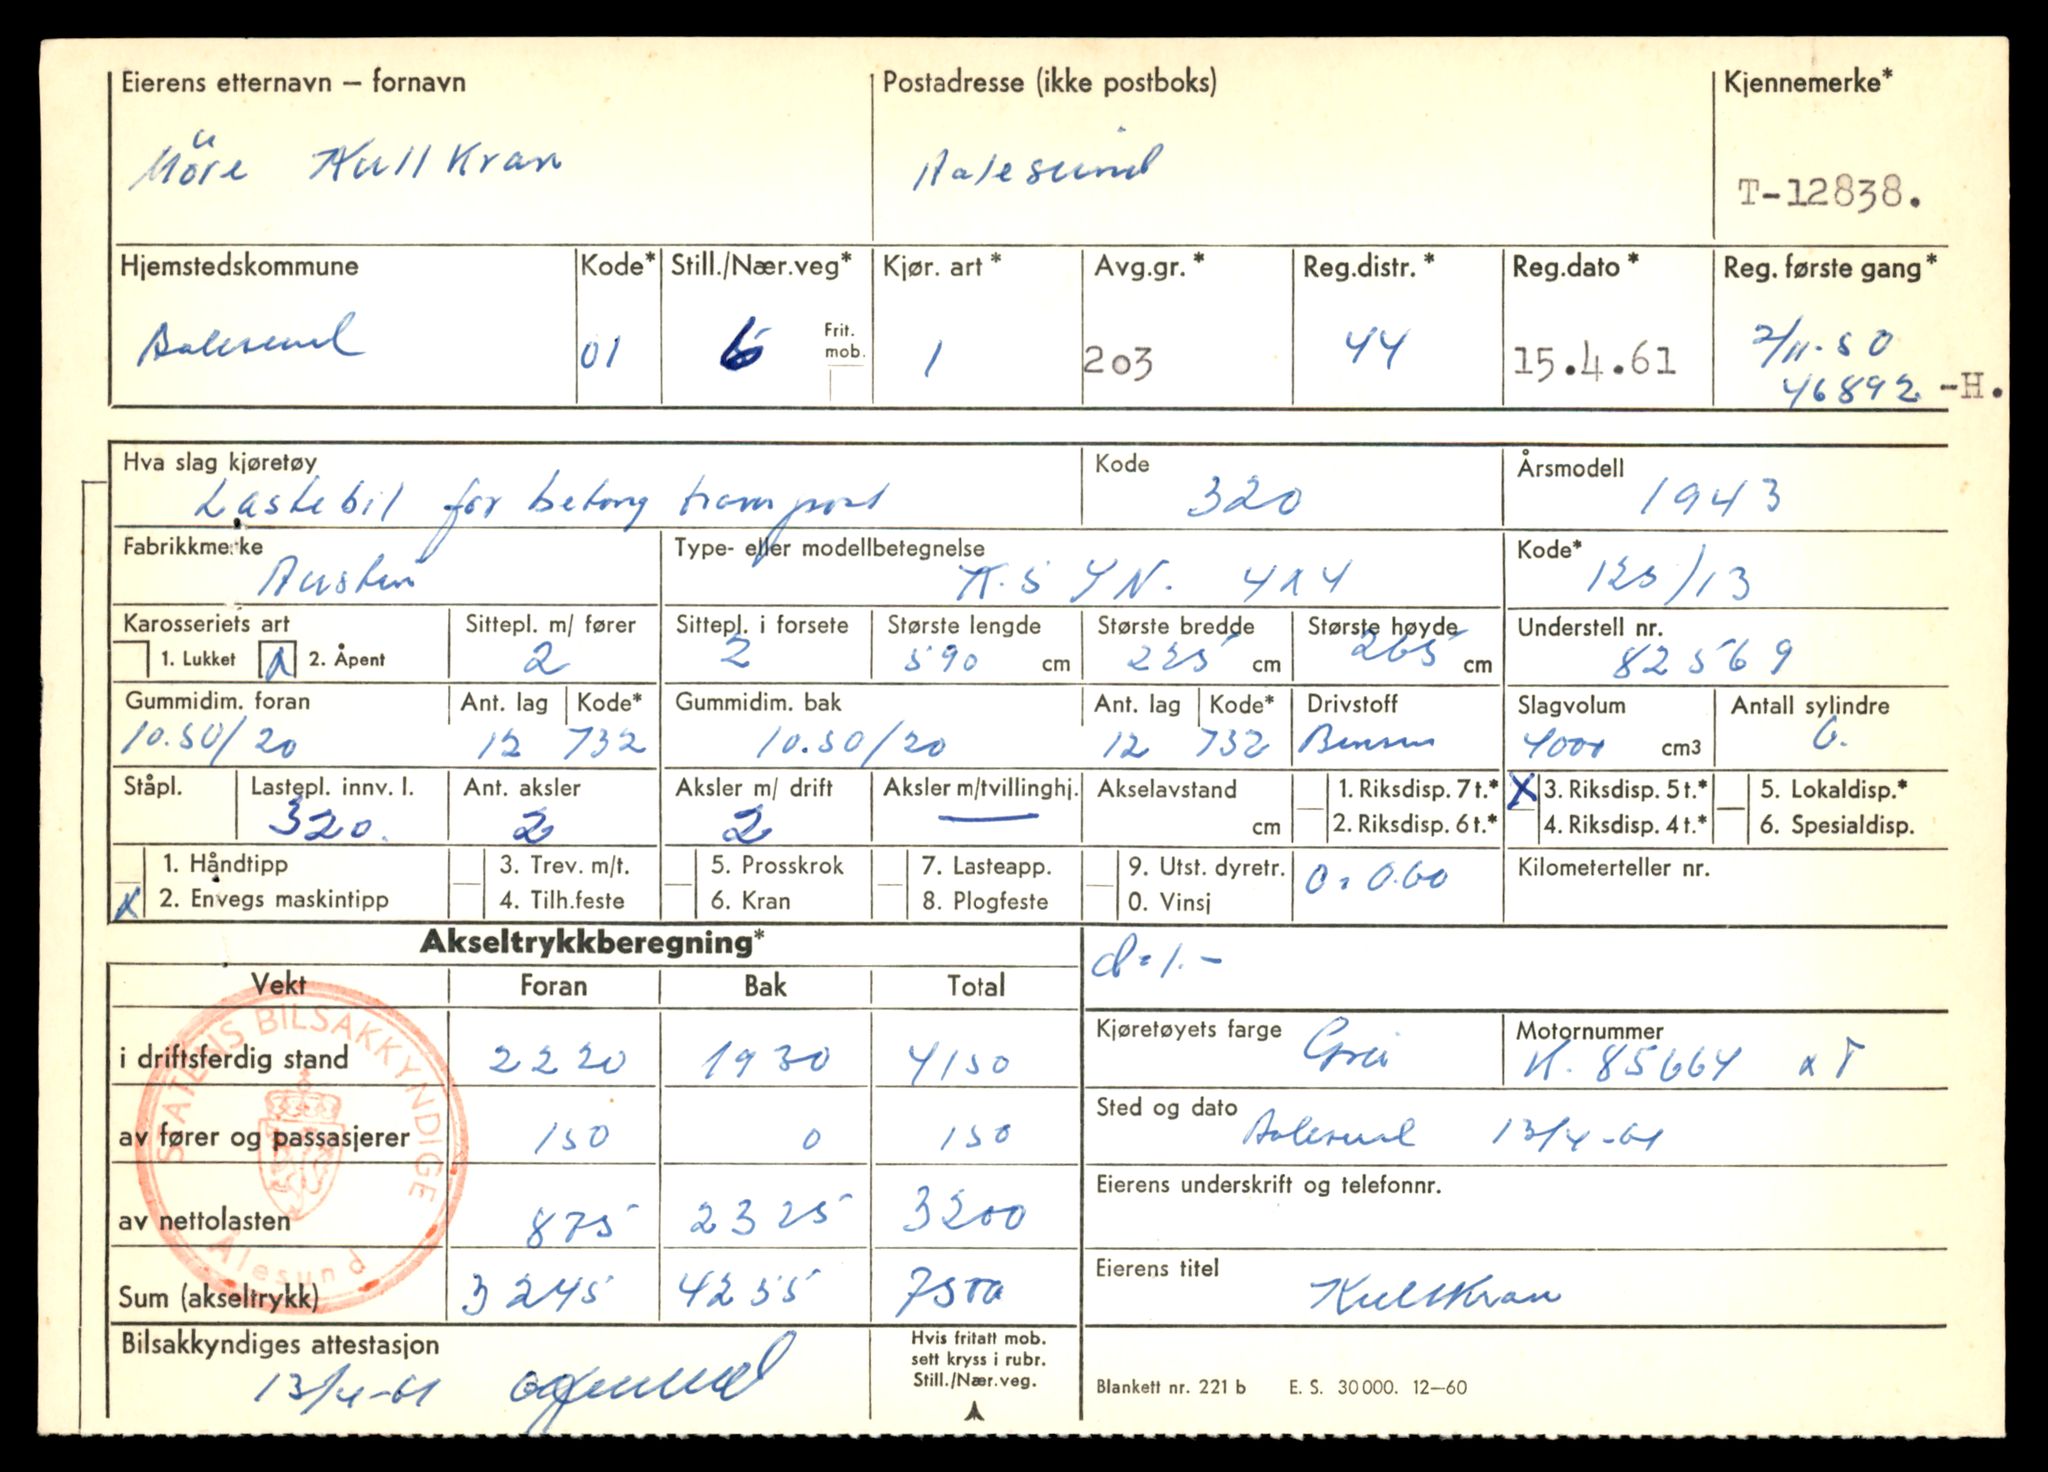 Eierens etternavn — fornavn
Møre Kullkran
Postadresse (ikke postboks)
Aalesund
Kjennemerke*
T-12838.
Hjemstedskommune
Aalesund
Kode*
01
Still./Nær.veg*
6
Frit.
mob.
Kjør. art *
1
Avg.gr. *
203
Reg.distr. *
44
Reg.dato *
15.4.61
Reg. første gang*
2/11-50
46892 -H.
Hva slag kjøretøy
Lastebil for betong transport
Kode
320
Årsmodell
1943
Fabrikkmerke
Austin
Type- eller modellbetegnelse
K.5 YN. 4x4
Kode*
125/13
Karosseriets art
1. Lukket
X 2. Åpent
Sittepl. m/ fører
2
Sittepl. i forsete
2
Største lengde
590 cm
Største bredde
225 cm
Største høyde
265 cm
Understell nr.
82569
Gummidim. foran
10.50/20
Ant. lag
12
Kode*
732
Gummidim. bak
10.50/20
Ant. lag
12
Kode*
732
Drivstoff
Bensin
Slagvolum
4000 cm3
Antall sylindre
6.
Ståpl.
Lastepl. innv. l.
320.
Ant. aksler
2
Aksler m/ drift
2
Aksler m/tvillinghj.
—
Akselavstand
cm
1. Riksdisp. 7 t.*
2. Riksdisp. 6 t.*
X 3. Riksdisp. 5 t.*
4. Riksdisp. 4 t.*
5. Lokaldisp.*
6. Spesialdisp.
1. Håndtipp
X 2. Envegs maskintipp
3. Trev. m/t.
4. Tilh.feste
5. Prosskrok
6. Kran
7. Lasteapp.
8. Plogfeste
9. Utst. dyretr.
0. Vinsj
0=0.60
Kilometerteller nr.
Akseltrykkberegning*
d=1.-
Vekt Foran Bak Total
i driftsferdig stand 2220 1930 4150
av fører og passasjerer 150 0 150
av nettolasten 875 2325 3200
Sum (akseltrykk) 3245 4255 7500
STATENS BILSAKKYNDIGE
Ålesund
Kjøretøyets farge
Grå
Motornummer
K. 85664 x T
Sted og dato
Aalesund 13/4-61
Eierens underskrift og telefonnr.
Eierens titel
Kullkran
Bilsakkyndiges attestasjon
13/4-61
Hvis fritatt mob.
sett kryss i rubr.
Still./Nær.veg.
Blankett nr. 221 b E. S. 30 000. 12—60